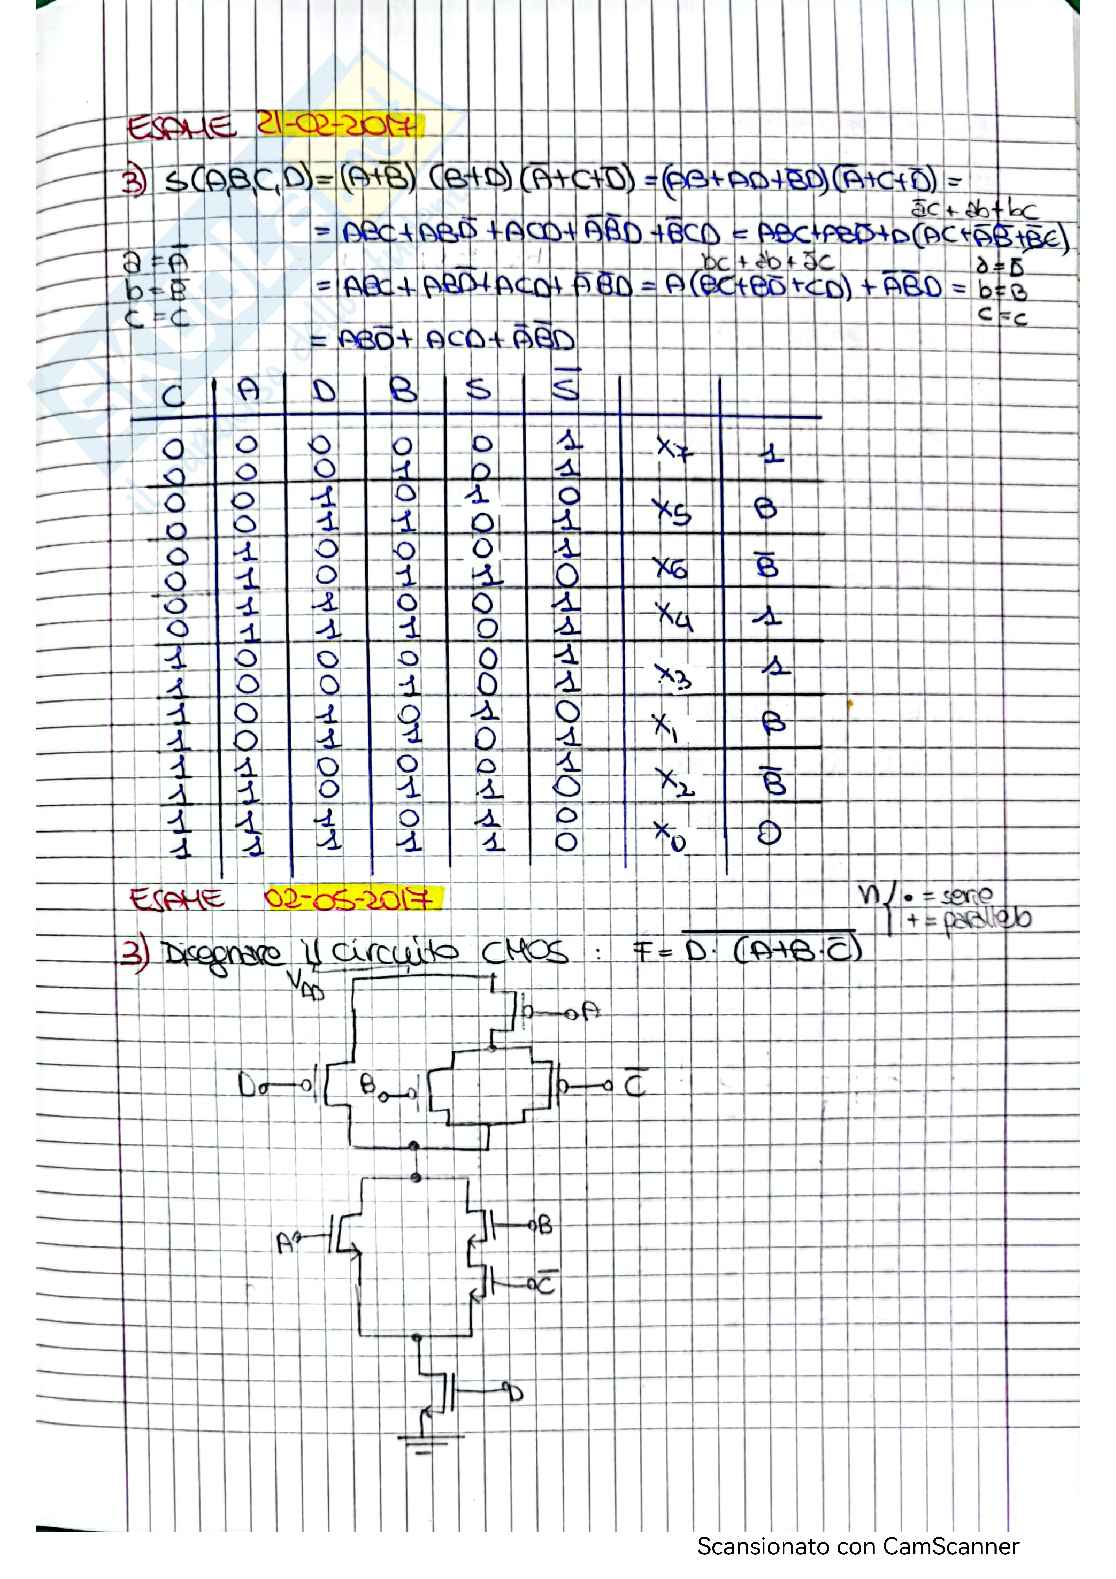 ESAME 21-02-2017
3) S(A,B,C,D)=(A+B̅) (B+D) (A̅+C+D̅) = (AB+AD+B̅D)(A̅+C+D̅) =
a̅c+ab+bc
= ABC+ABD̅+ACD+A̅B̅D+B̅CD = ABC+ABD̅+D(AC+A̅B̅+B̅C)
a=A̅
b=B̅
c=C
bc+ab+a̅c
= ABC+ABD̅+ACD+A̅B̅D = A(BC+BD̅+CD)+A̅B̅D =
a=D̅
b=B
c=C
= ABD̅+ACD+A̅B̅D
C A D B S S̅
0 0 0 0 0 1 X7 1
0 0 0 1 0 1
0 0 1 0 1 0 X5 B
0 0 1 1 0 1
0 1 0 0 0 1 X6 B̅
0 1 0 1 1 0
0 1 1 0 0 1 X4 1
0 1 1 1 0 1
1 0 0 0 0 1 X3 1
1 0 0 1 0 1
1 0 1 0 1 0 X1 B
1 0 1 1 0 1
1 1 0 0 0 1 X2 B̅
1 1 0 1 1 0
1 1 1 0 1 0 X0 0
1 1 1 1 1 0
ESAME 02-05-2017
n / • = serie
+ = parallelo
3) Disegnare il circuito CMOS : F = D·(A+B·C̅)
VDD
A
D B C̅
A B
C̅
D
Scansionato con CamScanner